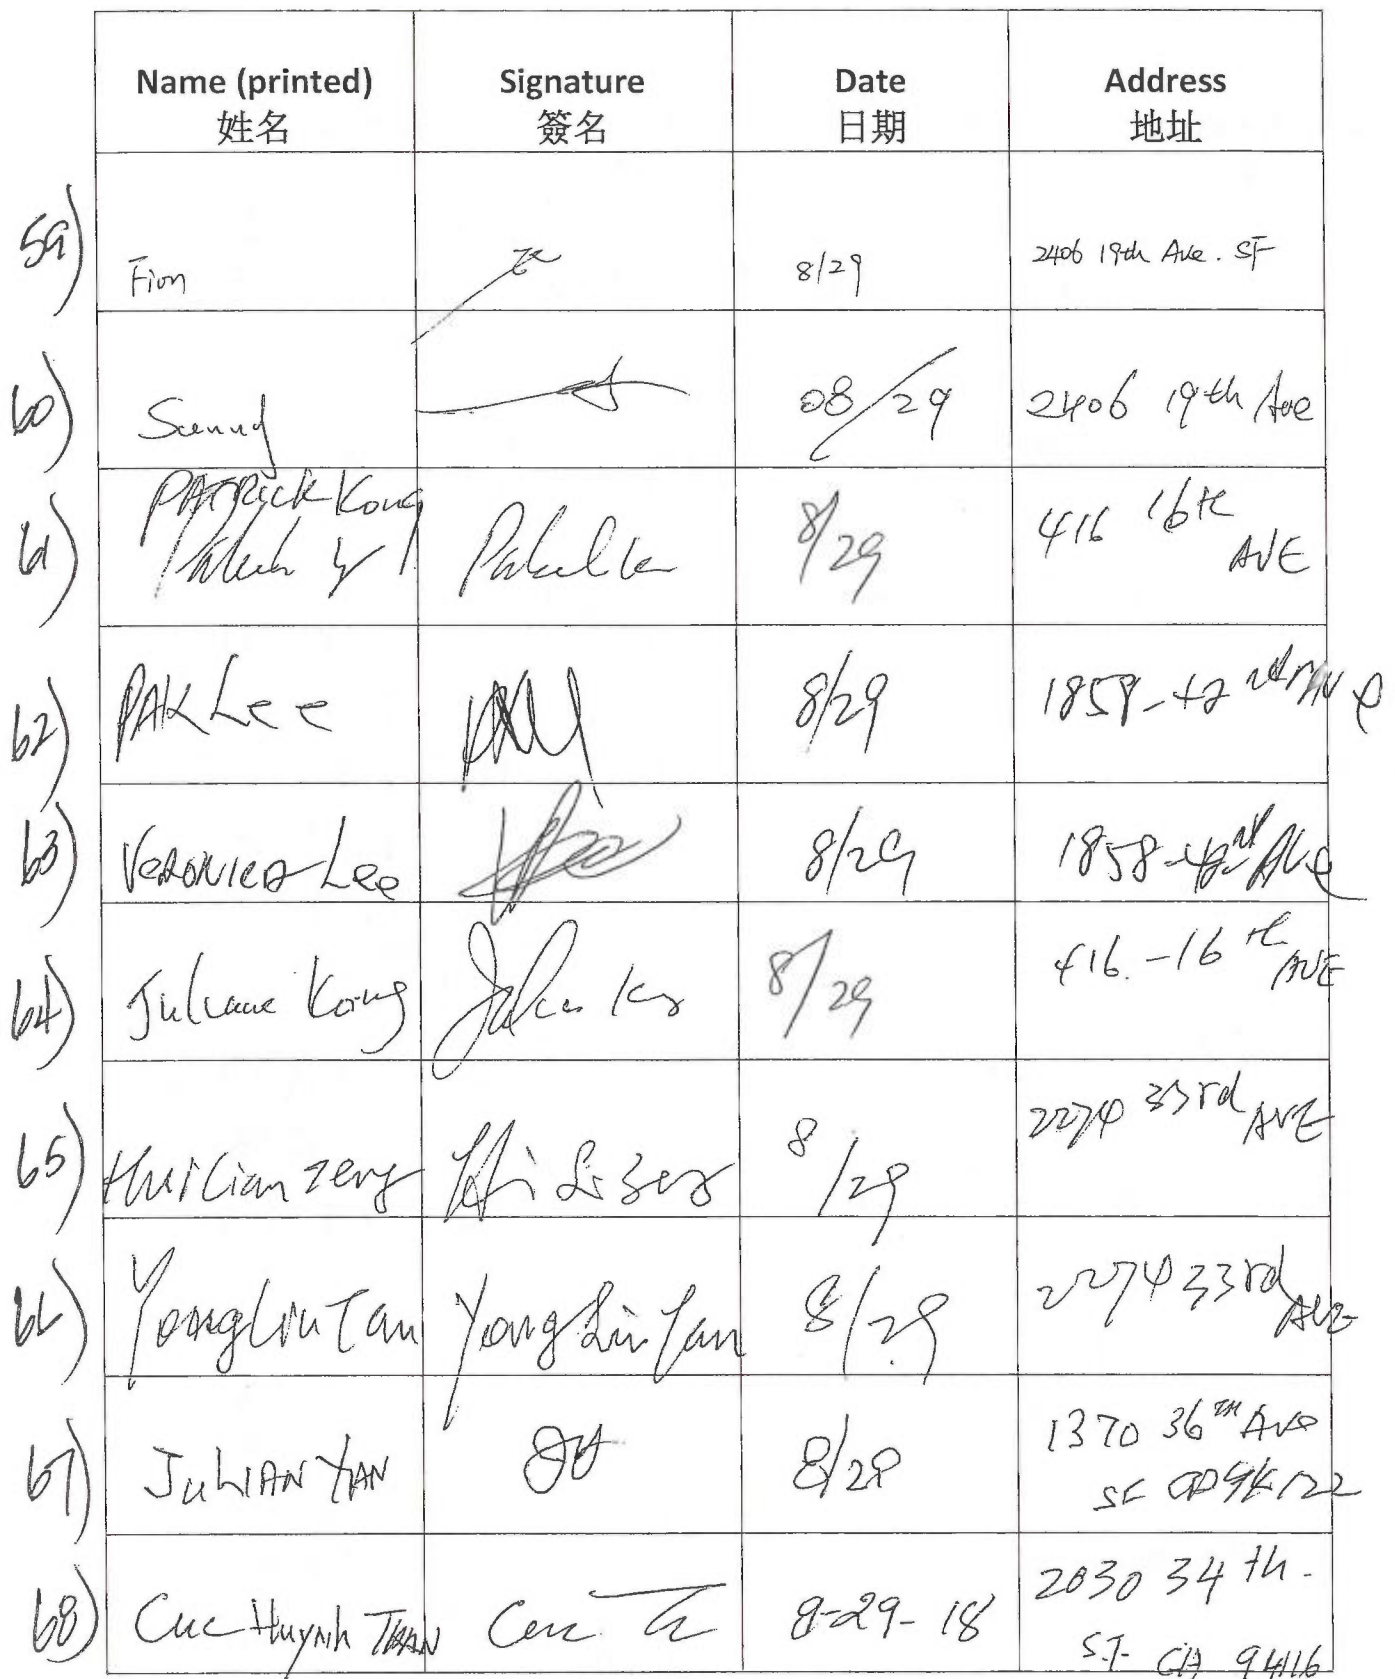 Name (printed) Signature Date Address
姓名 簽名 日期 地址
59) Fion 8/29 2406 19th Ave. SF
60) Sunny 08/29 2406 19th Ave
61) PATRICK Kong 8/29 416 16th
AVE
62) PAK Lee 8/29 1858-42nd Ave
63) VERONICA Lee 8/29 1858-42nd AVe
64) Juliane Kong 8/29 416.-16th
AVE
65) Huilian zeng 8/29 2274 33rd AVE
66) Yonglin Tan Yong Lin Tan 8/29 2274 33rd
AVE
67) JULIAN YAN 8/29 1370 36TH Ave
SF CA 94122
68) Cuc Huynh TRAN 8-29-18 2030 34th.
S.F. CA 94116